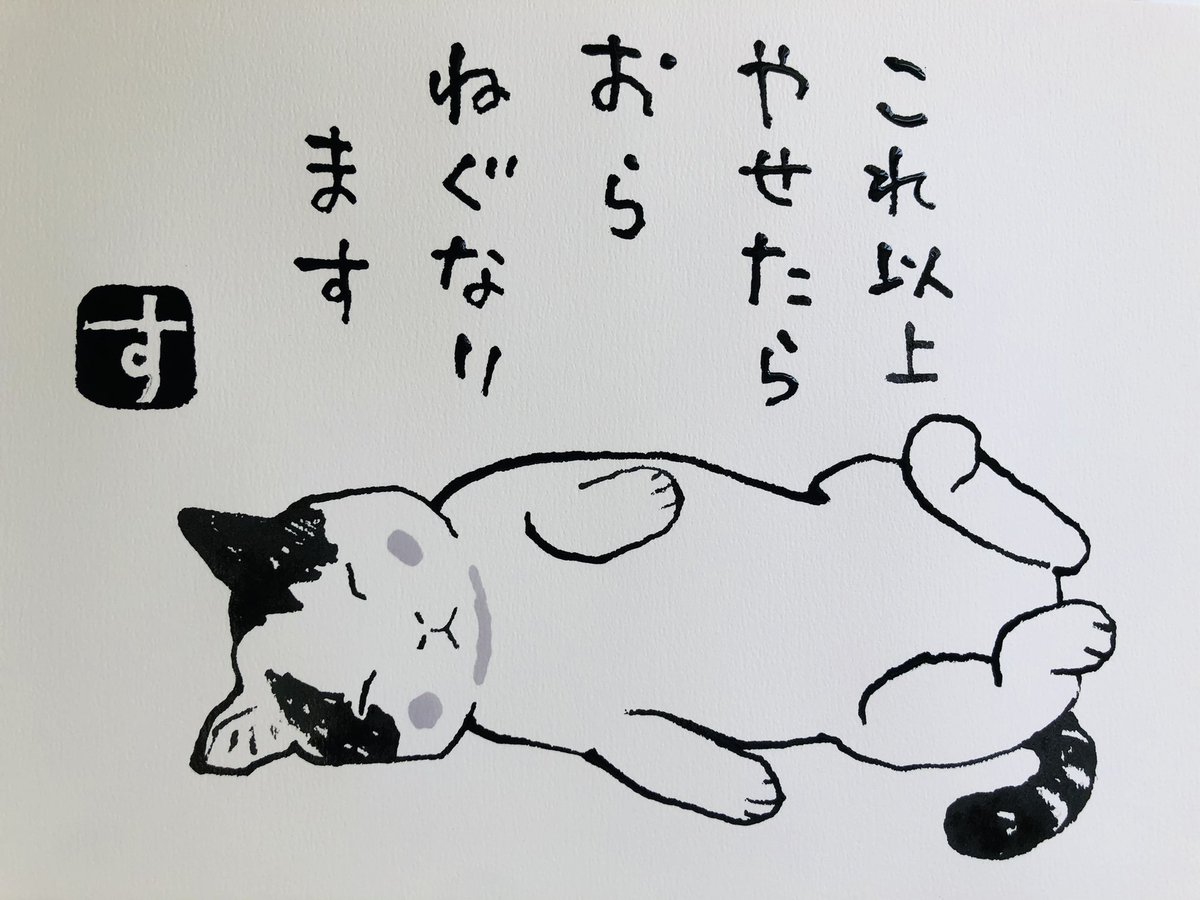 これ以上
やせたら
おら
ねぐなり
ます
す